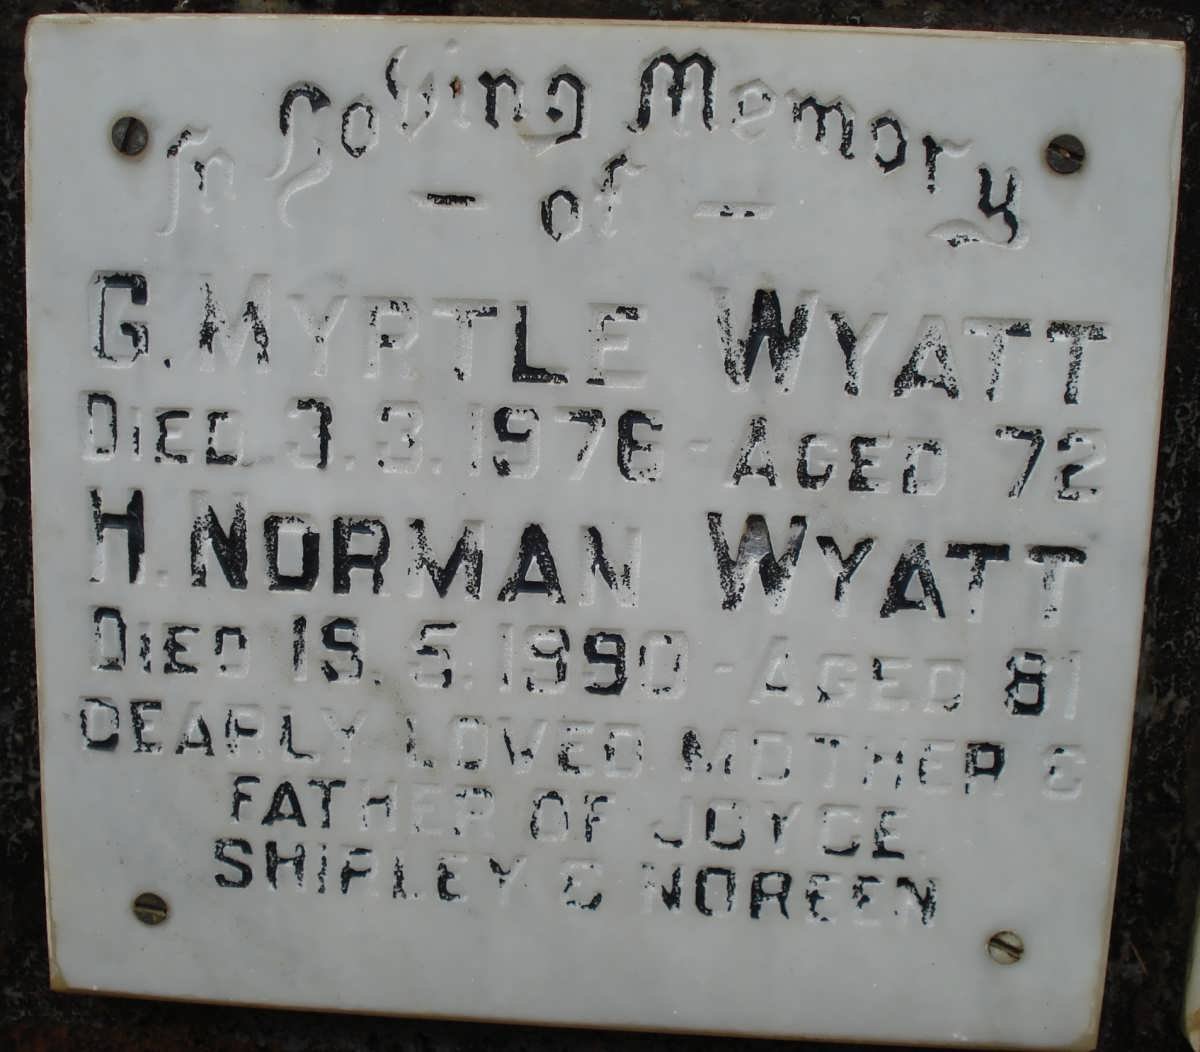 In Loving Memory
- of -
G. MYRTLE WYATT
DIED 3.3.1976 - AGED 72
H. NORMAN WYATT
DIED 19.5.1990 - AGED 81
DEARLY LOVED MOTHER &
FATHER OF JOYCE,
SHIRLEY & NOREEN